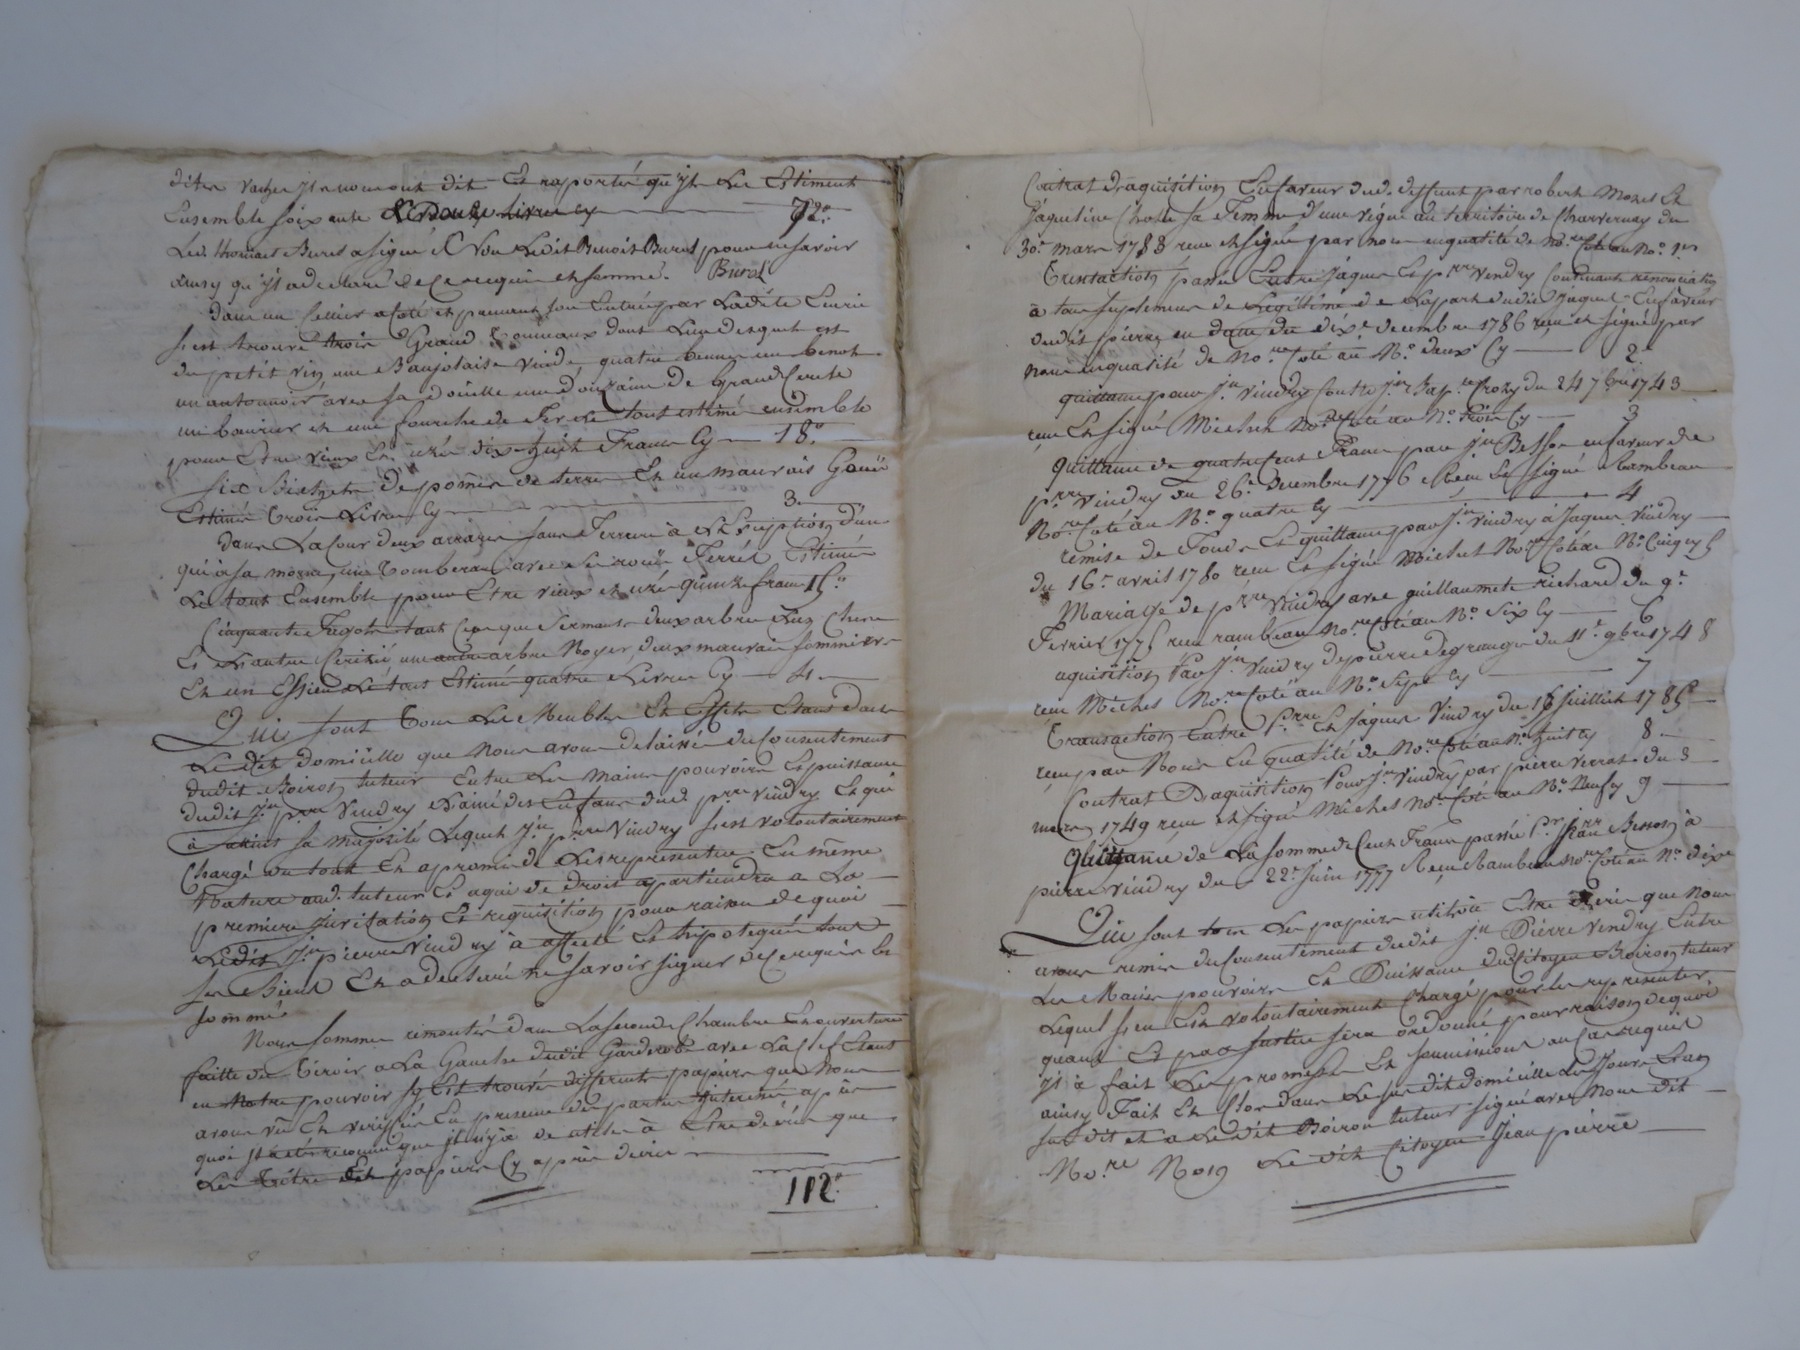 dites vaches ils nous ont dit Et raporté qu'ils Les Estiment
Ensemble soixante & Douze Livres Cy 72.
Led. thomas Burel a signé & Non Ledit Benoit Burel pour ne savoir
ainsy qu'il a declaré de Ce requis et sommé. Burel
dans un Cellier a Coté et prenant son Entrée par Ladite Ecurie
s'est trouvé trois Grands tonneaux dont L'un desquels est
du petit vin une Baujolaise vuide quatre bennes une benot
un antonnoir avec sa douille une douzaine de Grand Cercle
un bavier et une fourche de Fer Le tout estimé ensemble
pour Etre vieux Et uzés dix huit Francs Cy 18.
six Bichets de pomes de terre Et un mauvais Gouë
Estimé trois Livres Cy 3
dans La Cour deux arraires sans Ferrure à L'Exception d'un
qui a sa moua, un tomberau avec ses rouës Ferrés Estimé
Le tout Ensemble pour Etre vieux et uzés quinze francs 15.
Cinquante Fagots tant Ceps que Sermants deux arbres L'un Chene
Et L'autre Cerizié un autre arbre Noyer deux mauvais sommiers
Et un Essieu Le tout Estimé quatre Livres Cy 4
Qui sont tous Les Meubles Et Effets Etant dans
Le dit domicille que Nous avons delaissé du Consentement
dudit Boiron tuteur Entre Les mains pouvoirs Et puissance
dudit Jn pre Vindry L'ainé des Enfans dud. prre vindry Et qui
à atteint sa majorité Lequel Jn prre Vindry s'est volontairement
Chargé du tout Et a promis de Les representer En même
Nature aud. tuteur Et a qui de droit apartiendra a La
premiere jnvitation Et requisition pour raison de quoi
Ledit Jn pierre Vindry à affecté Et hipotequé tout
ses Biens Et a declaré ne savoir signer de Ce requis Et
sommé
Nous sommes remontés dans La seconde Chambre Et ouverture
faitte du tiroir a La Gauche dudit Garderobe avec La Clef Etant
en Notre pouvoir s'y Est trouvé differents papiers que Nous
avons vu Et verifiés En presence des parties jnteressés après
quoi jl a été reconnu que jl n'y a de utile à Etre décris que
Les titres Et papiers Cy après décris
112.
Contrat D'aquisition En faveur dud. deffunt par robert Monet Et
Jaqueline Cholle sa Femme d'une vigne au territoire de Charvernay du
30e mars 1788 recu et signé par nous en qualité de No.re Coté au No. 1er
Transaction passée Entre Jaques Et prre Vindry Contenant renonciation
à tous suplement de Legitime de La part dudit Jaques En faveur
dudit pierre en datte du dixe decembre 1786 recu et signé par
nous en qualité de No.re Coté au No. deux Cy 2.
quittance pour Jn Vindry Contre Jn Bap.te Crozy du 24 7bre 1743
recu Et signé Michel No.re Coté au No. trois Cy 3
Quittance de quatre Cent Francs par Jn Besson en faveur de
prre vindry du 26e Decembre 1776 Recu Et signé Rambeau
No.re Coté au No. quatre Cy 4
remise de Fonds Et quittance par Jn Vindry à Jaques Vindry
du 16e avril 1780 recu Et signé Michel No.re Coté au No. Cinq cy 5
Mariage de prre Vindry avec guillaumete richard du 9e
Fevrier 1775 recu rambeau No.re Coté au No. Six Cy 6
aquisition Par Jn Vindry de pierre degrange du 11e 9bre 1748
recu Michel No.re Coté au No. Sept Cy 7
Transaction Entre P.rre Et Jaques Vindry du 16 Juillet 1785
recu par Nous En qualité de No.re Coté au No. huit cy 8
Contrat D'aquisition Pour Jn Vindry par pierre Verrat du 3
mars 1749 recu et signé Michel No.re Coté au No. Neuf cy 9
Quittance de La somme de Cent Francs passée Pr Jean Besson à
pierre vindry du 22e Juin 1777 Recu Rambeau No.re Coté au No. dixe
Qui sont tous Les papiers utiles à Etre décris que Nous
avons remis du Consentement dudit Jn Pierre Vendry Entre
Les Mains pouvoirs Et Puissance du Citoyen Boiron tuteur
Lequel s'en Est volontairement Chargé pour les representer
quand Et par Justice sera ordonné pour raison de quoi
jl à fait Les promesses Et soumissions au Cas requis
ainsy Fait Et Clos dans Le susdit domicille Les Jours Et an
susdit et a Ledit Boiron tuteur signé avec Nous dit
No.re Non Le dit Citoyen Jean pierre